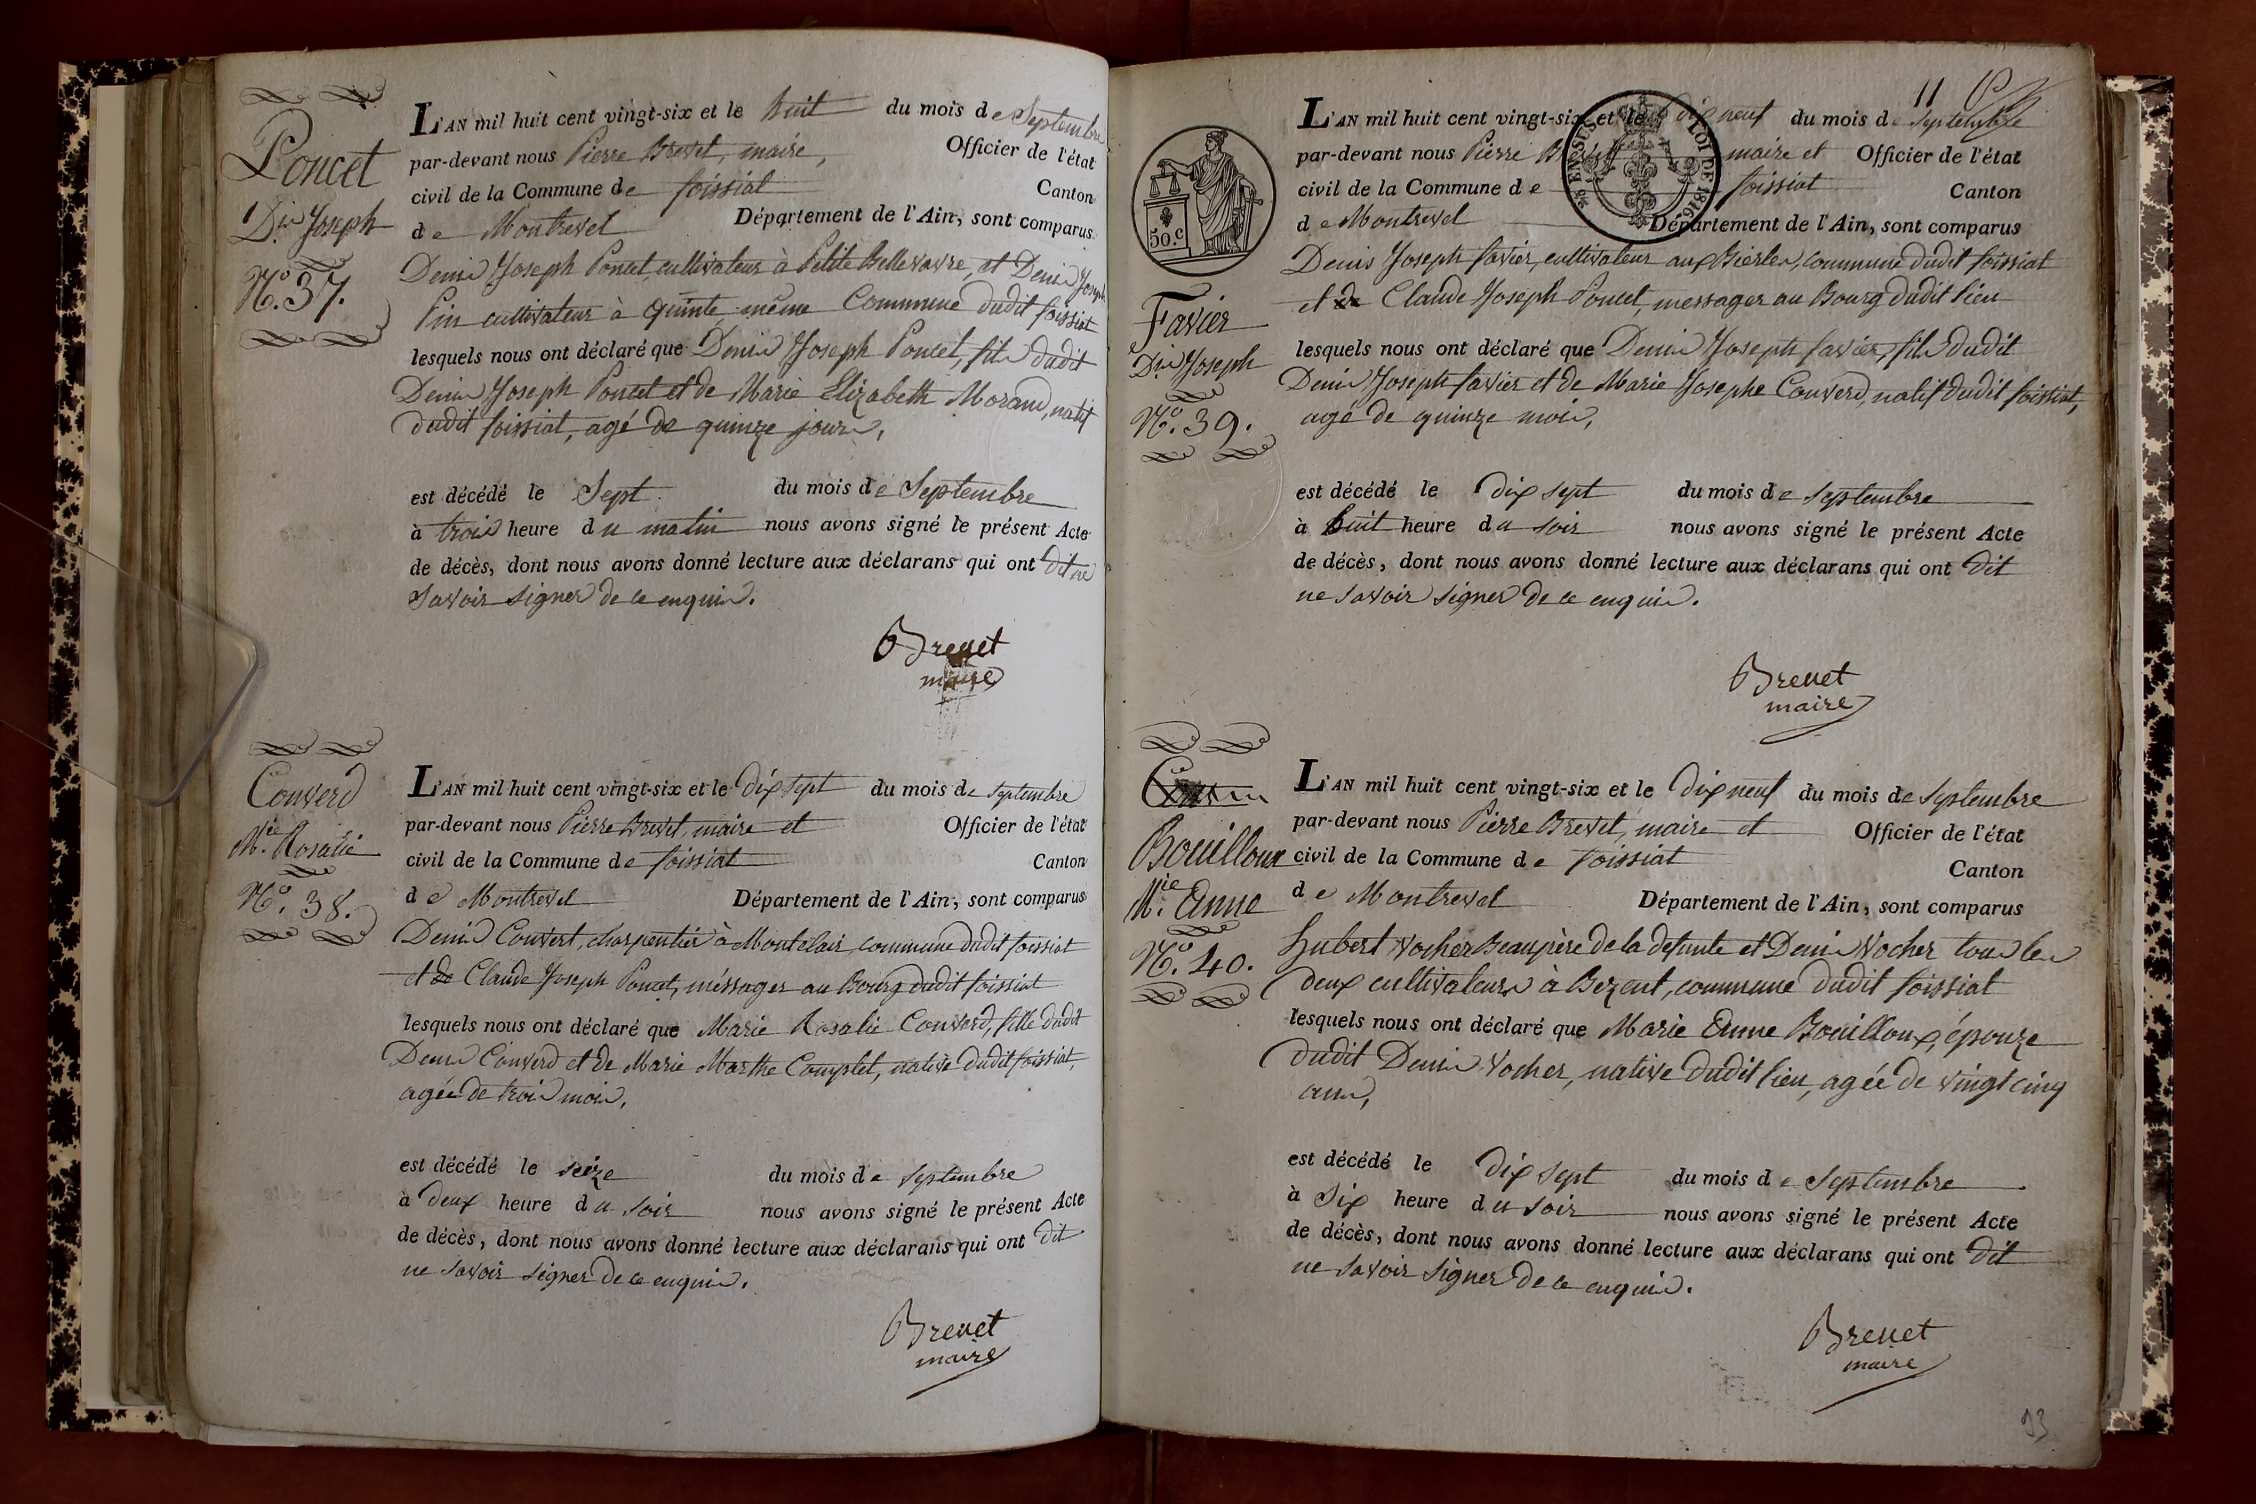 Poncet
D.is Joseph
N.o 37.
L'AN mil huit cent vingt-six et le huit du mois de Septembre
par-devant nous Pierre Brevet, maire, Officier de l'état
civil de la Commune de foissiat Canton
de Montrevel Département de l'Ain, sont comparus
Denis Joseph Poncet, cultivateur à Petite Bellevavre, et Denis Joseph
Pin cultivateur à Quinte même Commune dudit foissiat
lesquels nous ont déclaré que Denis Joseph Poncet, fils dudit
Denis Joseph Poncet et de Marie Elizabeth Morand, natif
dudit foissiat, agé de quinze jours,
est décédé le Sept du mois de Septembre
à trois heure du matin nous avons signé le présent Acte
de décès, dont nous avons donné lecture aux déclarans qui ont dit ne
savoir signer de ce enquis.
Brevet
maire
Converd
M.ie Rosalie
N.o 38.
L'AN mil huit cent vingt-six et le dix sept du mois de septembre
par-devant nous Pierre Brevet, maire et Officier de l'état
civil de la Commune de foissiat Canton
de Montrevel Département de l'Ain, sont comparus
Denis Convert, charpentier à Montclair, commune dudit foissiat
et de Claude Joseph Poncet, méssager au Bourg dudit foissiat
lesquels nous ont déclaré que Marie Rosalie Converd, fille dudit
Denis Converd et de Marie Marthe Complet, native dudit foissiat,
agée de trois mois,
est décédé le seize du mois de septembre
à deux heure du soir nous avons signé le présent Acte
de décès, dont nous avons donné lecture aux déclarans qui ont dit
ne savoir signer de ce enquis.
Brevet
maire
11
50.c
EN SUS LOI DE 1816
Favier
D.is Joseph
N.o 39.
L'AN mil huit cent vingt-six et le dix neuf du mois de septembre
par-devant nous Pierre Brevet maire et Officier de l'état
civil de la Commune de foissiat Canton
de Montrevel Département de l'Ain, sont comparus
Denis Joseph favier, cultivateur aux Bierles, commune dudit foissiat
et de Claude Joseph Poncet, messager au Bourg dudit lieu
lesquels nous ont déclaré que Denis Joseph favier, fils dudit
Denis Joseph favier et de Marie Josephe Converd, natif dudit foissiat,
agé de quinze mois,
est décédé le dix sept du mois de septembre
à huit heure du soir nous avons signé le présent Acte
de décès, dont nous avons donné lecture aux déclarans qui ont dit
ne savoir signer de ce enquis.
Brevet
maire
Bouilloux
M.ie Anne
N.o 40.
L'AN mil huit cent vingt-six et le dix neuf du mois de septembre
par-devant nous Pierre Brevet, maire et Officier de l'état
civil de la Commune de foissiat Canton
de Montrevel Département de l'Ain, sont comparus
hubert Vocher Beaupère de la defunte et Denis Vocher tous les
deux cultivateurs à Bezent, commune dudit foissiat
lesquels nous ont déclaré que Marie Anne Bouilloux, épouze
dudit Denis Vocher, native dudit lieu, agée de vingt cinq
ans,
est décédé le dix sept du mois de septembre
à six heure du soir nous avons signé le présent Acte
de décès, dont nous avons donné lecture aux déclarans qui ont dit
ne savoir signer de ce enquis.
Brevet
maire
93